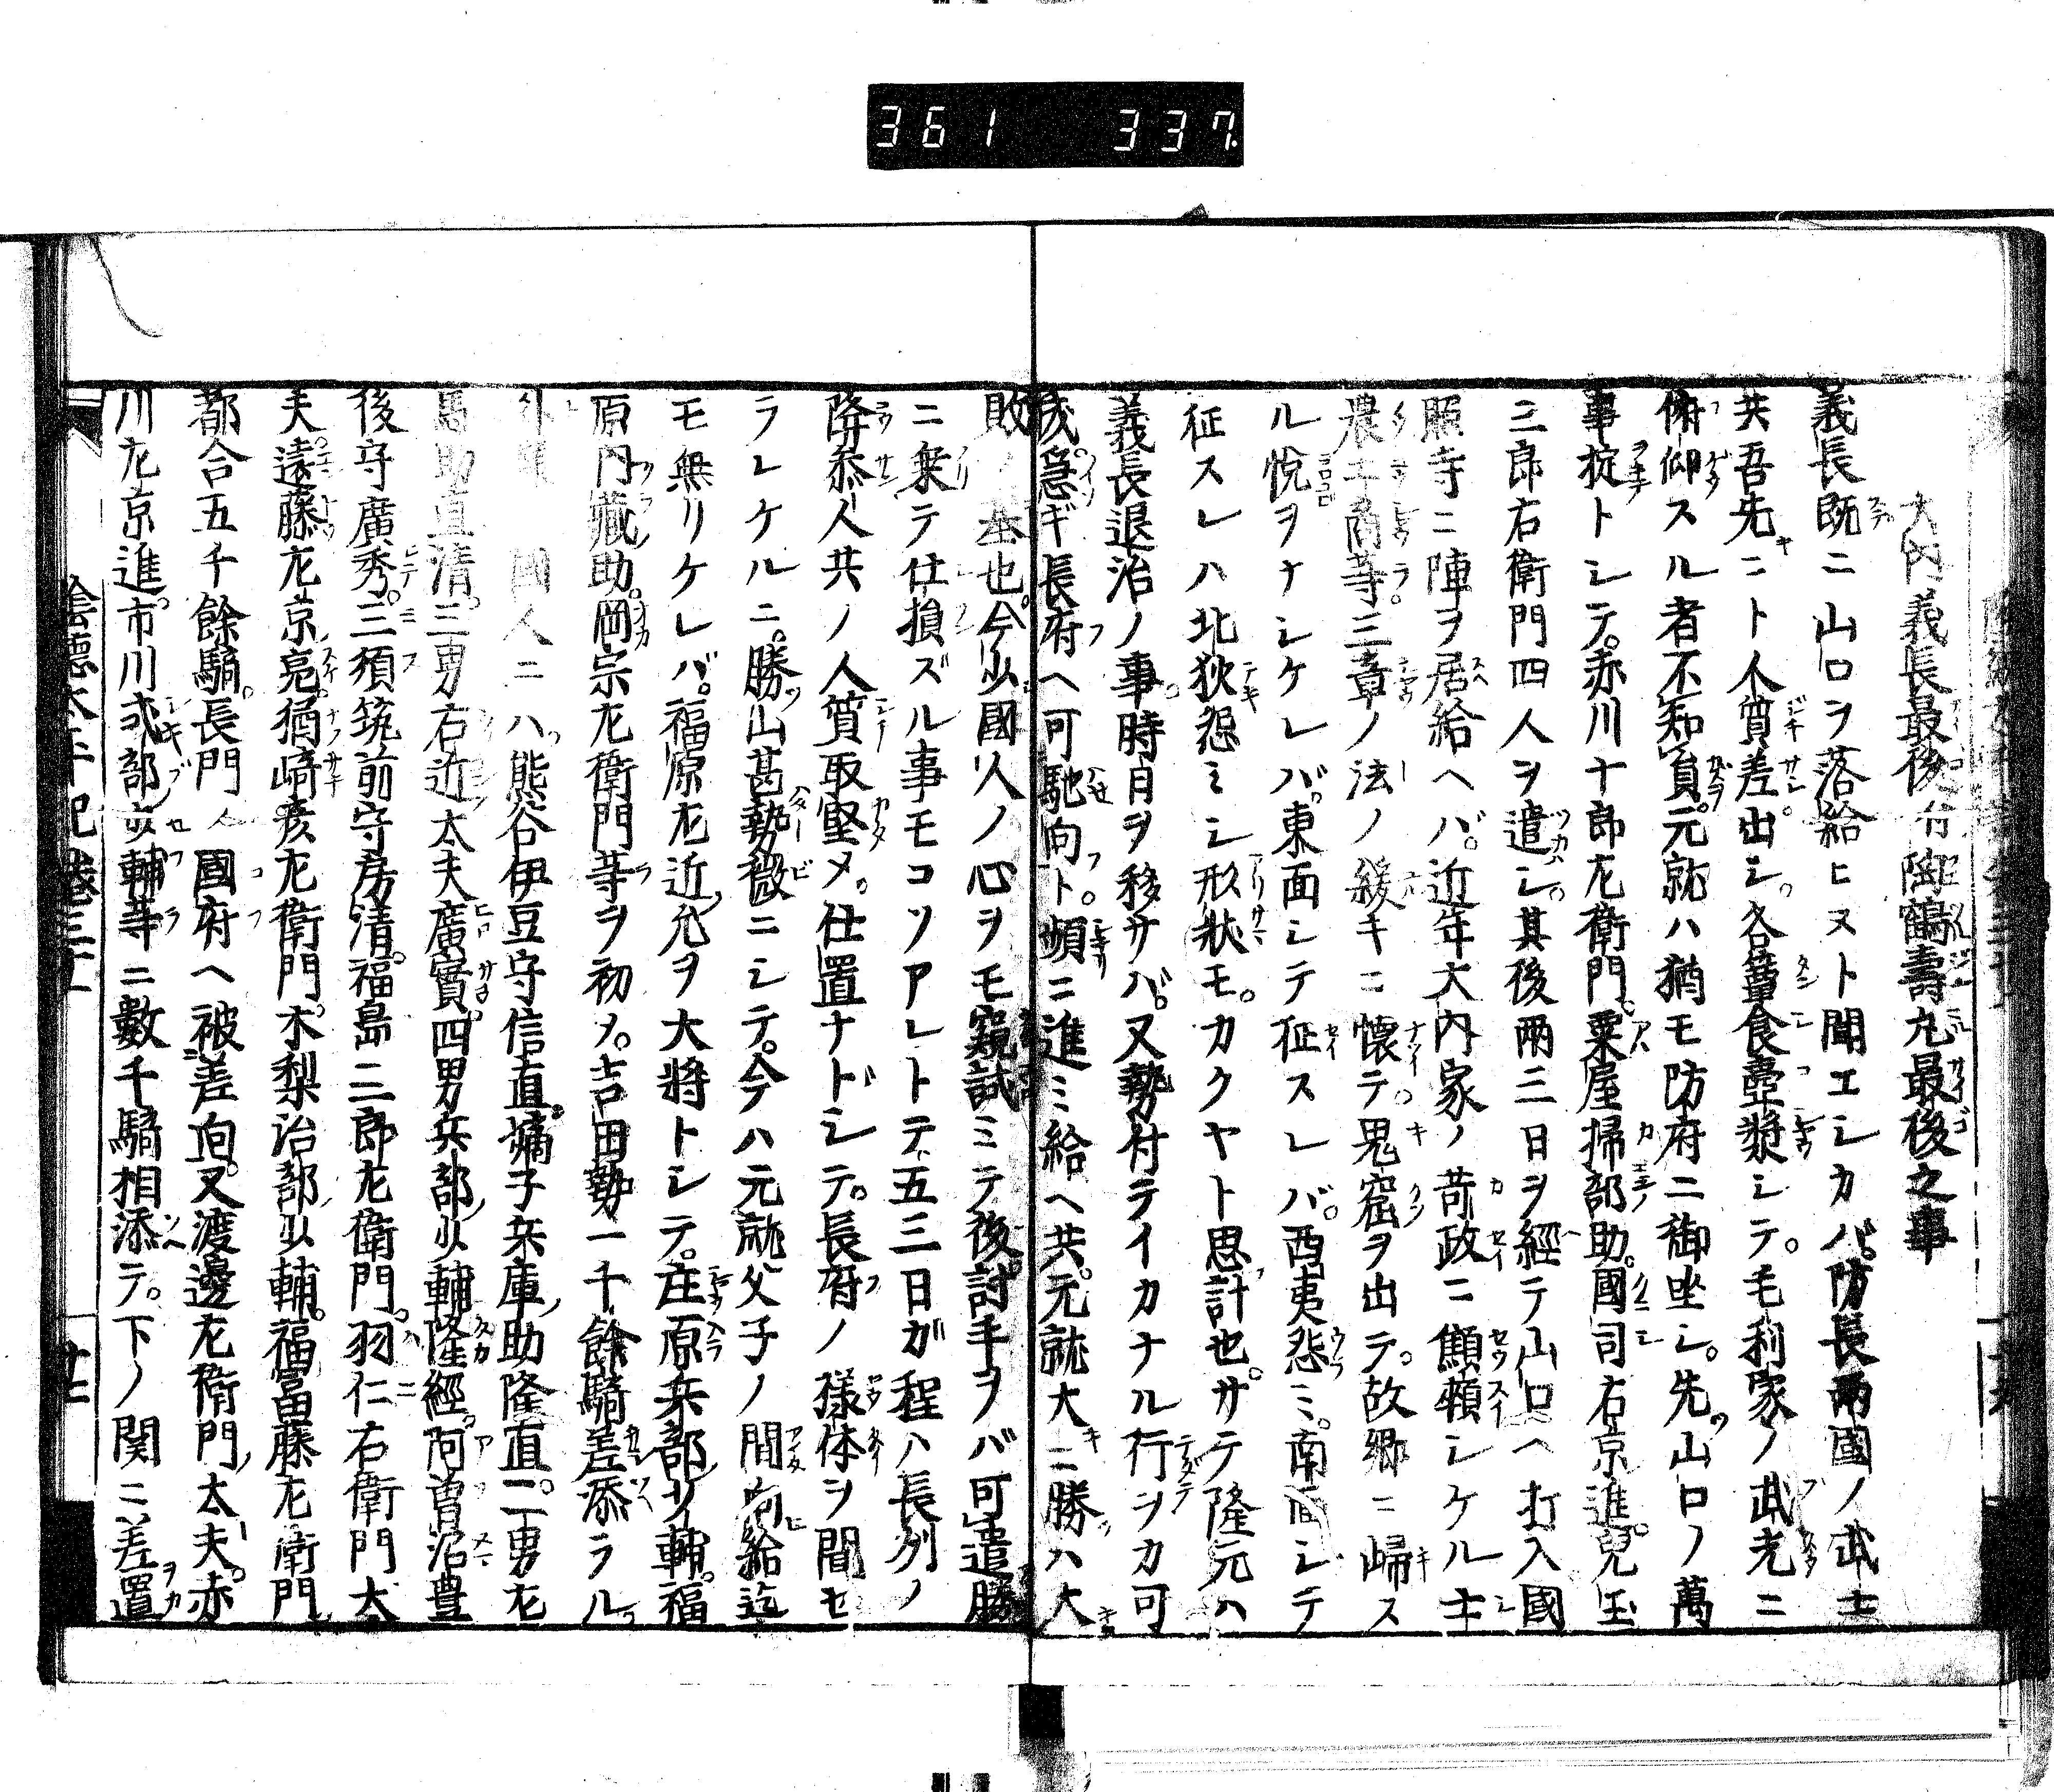 361 337
大内義長最後付陶鶴壽丸最後之事
義長既ニ山口ヲ落給ヒヌト聞エシカバ防長兩國ノ武士
共吾先ニト人質差出シ。各簞食壺漿シテ。毛利家ノ武允ニ
俯仰スル者不知員。元就ハ猶モ防府ニ御坐シ。先山口ノ萬
事掟トシテ。赤川十郎左衛門。粟屋掃部助。國司右京進。兒玉
三郎右衛門四人ヲ遣シ。其後兩三日ヲ經テ山口ヘ打入國
照寺ニ陣ヲ居給ヘバ。近年大内家ノ苛政ニ顦顇シケル士
農工商等三章ノ法ノ緩キニ懷テ鬼窟ヲ出テ。故郷ニ歸ス
ル悅ヲナシケレバ。東面シテ征スレバ。西夷怨ミ。南面シテ
征スレハ北狄怨ミシ形狀モ。カクヤト思計也。サテ隆元ハ
義長退治ノ事。時日ヲ移サバ。又勢付テイカナル行ヲカ可
成。急ギ長府ヘ可馳向ト。頻ニ進ミ給ヘ共。元就大ニ勝ハ大
敗ノ基也。今少國人ノ心ヲモ窺試ミテ後。討手ヲバ可遣勝
ニ乗テ仕損ズル事モコソアレトテ五三日ガ程ハ長列ノ
降参人共ノ人質取堅メ。仕置ナドシテ。長府ノ様体ヲ聞セ
ラレケルニ。勝山甚勢微ニシテ。今ハ元就父子ノ間向給迄
モ無リケレバ。福原左近允ヲ大將トシテ。庄原兵部少輔。福
原内藏助。岡宗左衛門等ヲ初メ。吉田勢一千餘騎差添ラル
國人ニハ熊谷伊豆守信直。嫡子兵庫助隆直。二男左
馬助直清。三男右近太夫廣實。四男兵部少輔隆經。阿曽沼豊
後守廣秀。三須筑前守房清。福島二郎左衛門。羽仁右衛門太
夫。遠藤左京亮。猶﨑彦左衛門。木梨治部少輔。福冨藤左衛門
都合五千餘騎。長門ノ國府ヘ被差向。又渡邊左衛門太夫。赤
川左京進。市川式部少輔等ニ數千騎相添テ。下ノ関ニ差置
陰德太平記卷三十
廿二